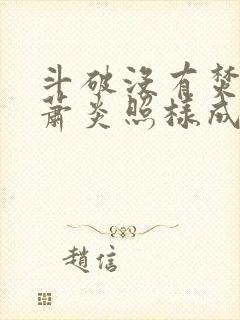 斗破没有焚
萧炎照样成
趙信